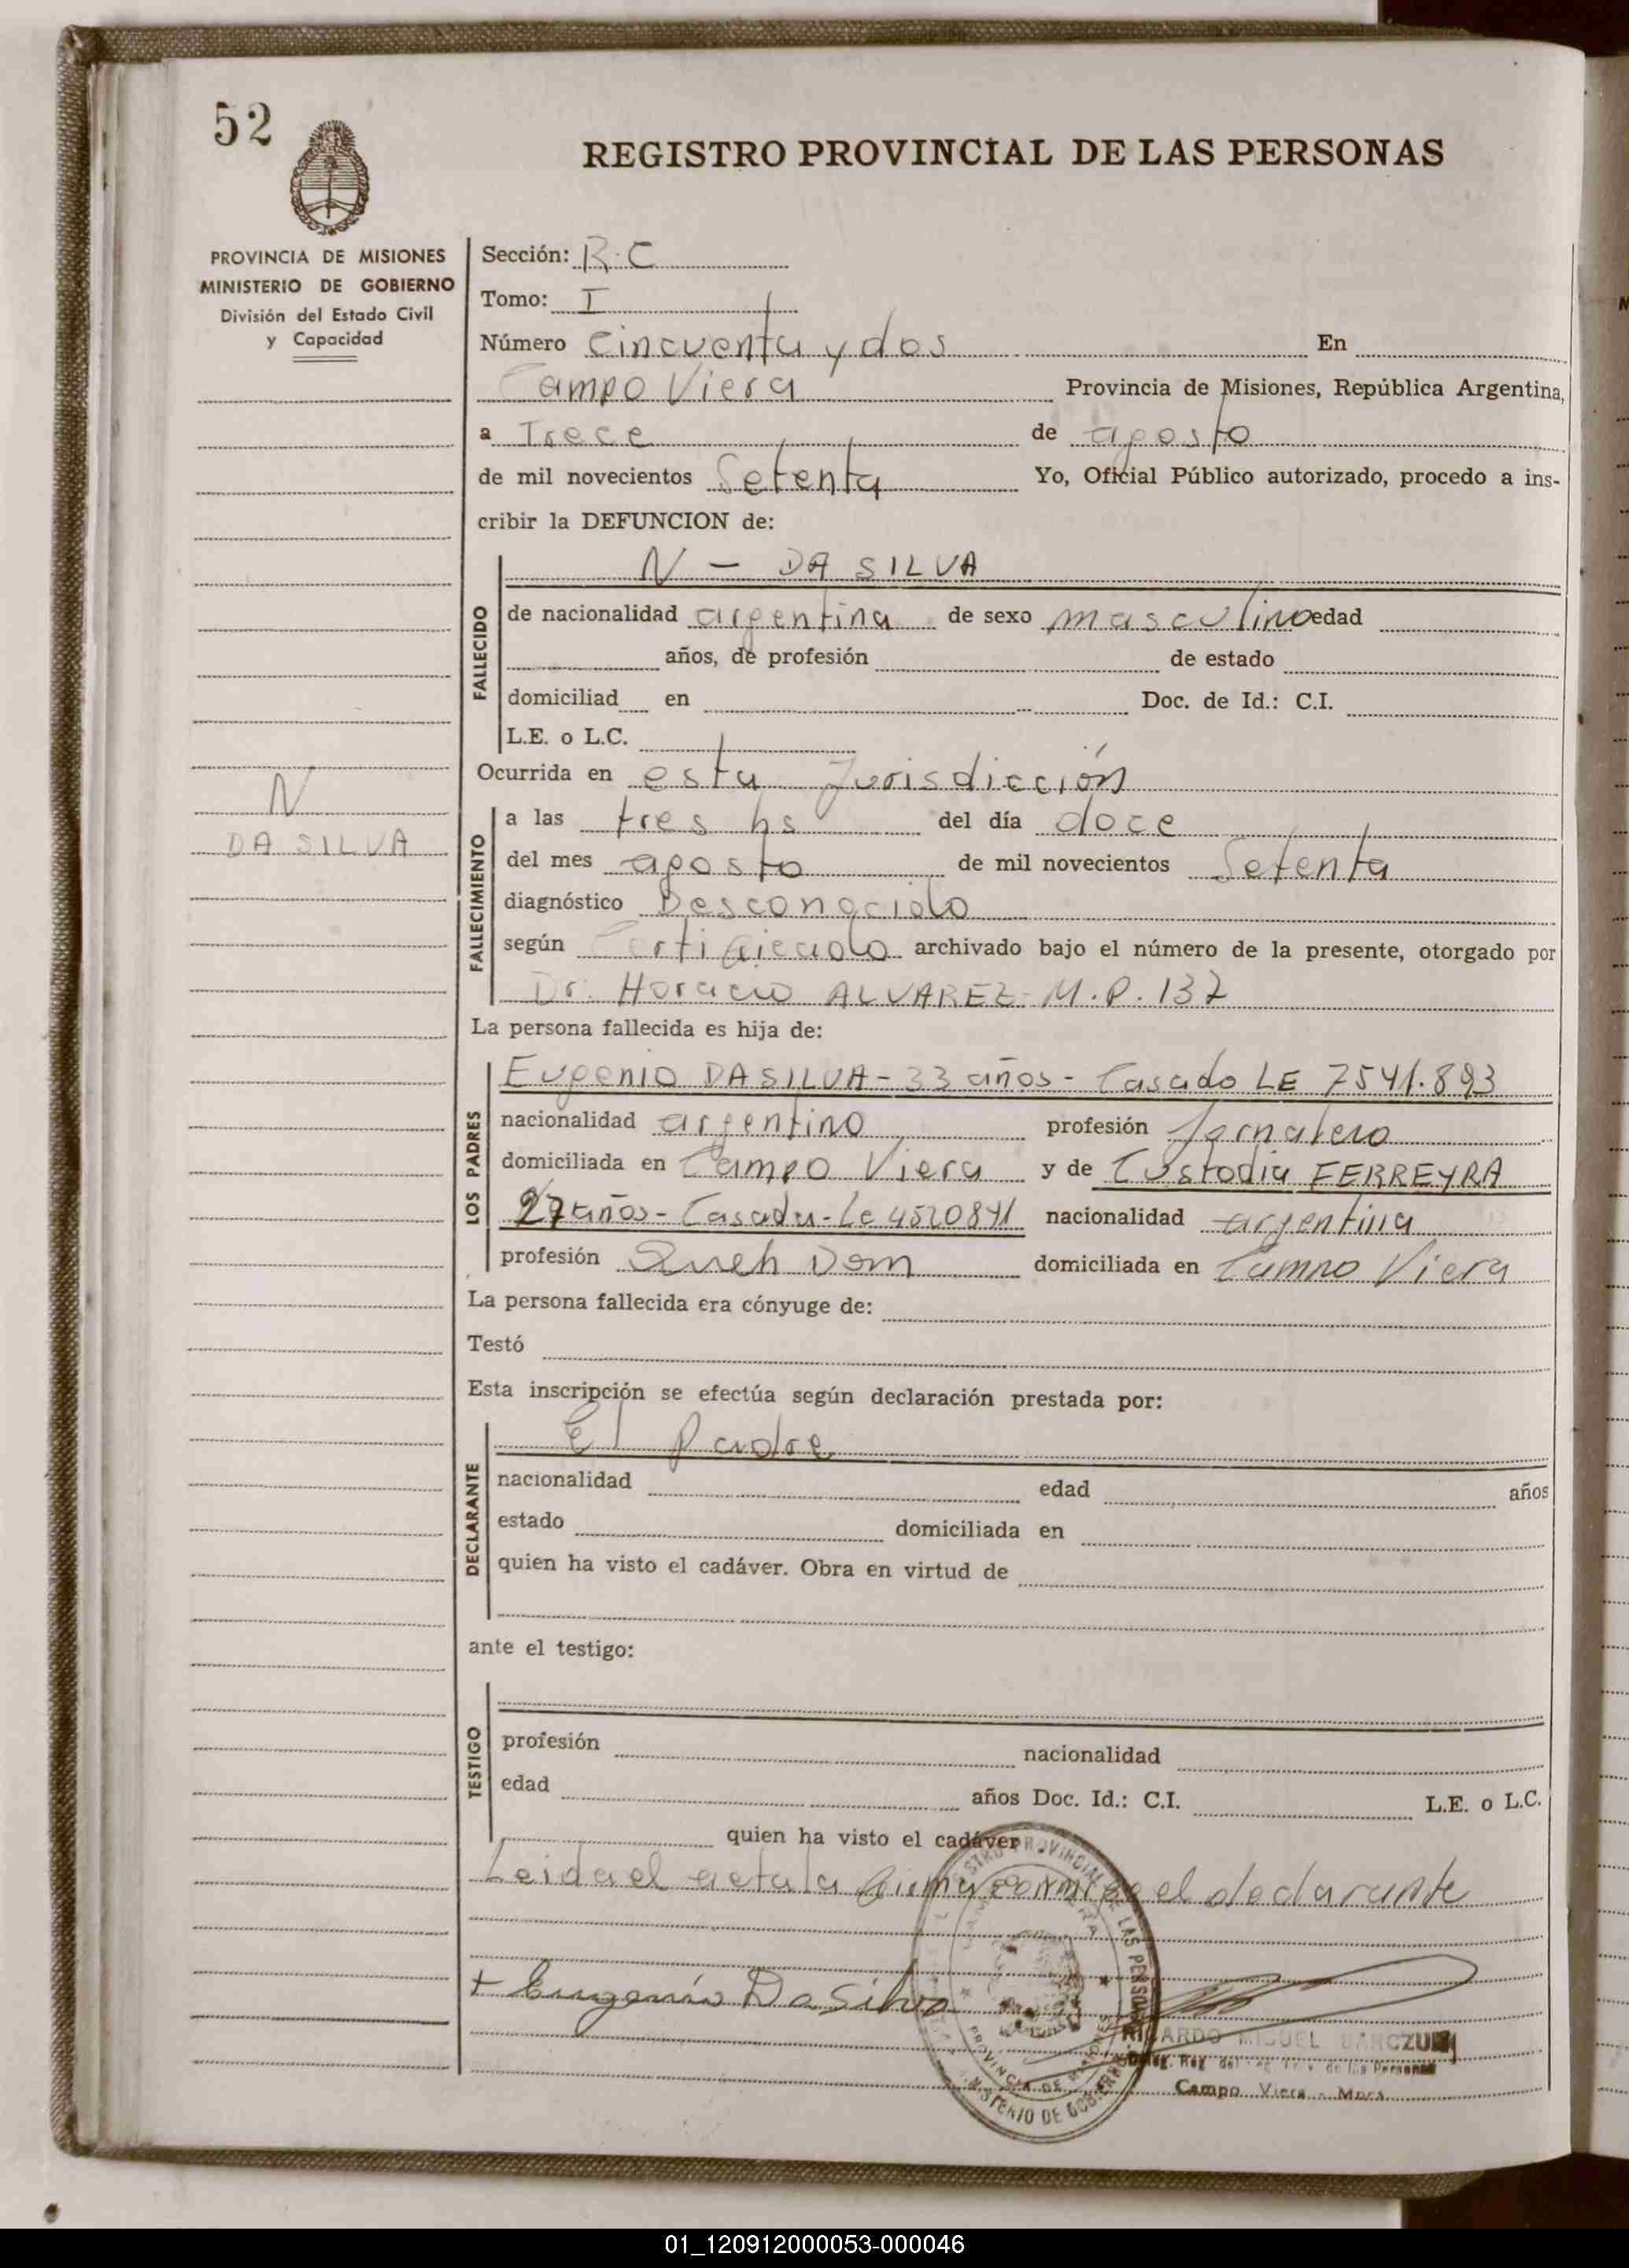 52
REGISTRO PROVINCIAL DE LAS PERSONAS
PROVINCIA DE MISIONES
MINISTERIO DE GOBIERNO
División del Estado Civil
y Capacidad
Sección: R.C
Tomo: I
Número Cincuenta y dos En
Campo Viera Provincia de Misiones, República Argentina,
a Trece de agosto
de mil novecientos Setenta Yo, Oficial Público autorizado, procedo a ins-
cribir la DEFUNCION de:
FALLECIDO
N - DA SILVA
de nacionalidad argentina de sexo masculino edad
años, de profesión de estado
domiciliad en Doc. de Id.: C.I.
L.E. o L.C.
Ocurrida en esta Jurisdicción
N
DA SILVA
FALLECIMIENTO
a las tres hs del día doce
del mes agosto de mil novecientos Setenta
diagnóstico Desconocido
según Certificado archivado bajo el número de la presente, otorgado por
Dr. Horacio ALVAREZ- M.P. 137
La persona fallecida es hija de:
LOS PADRES
Eugenio DA SILVA - 33 años - Casado LE 7541.893
nacionalidad argentino profesión Jornalero
domiciliada en Campo Viera y de Custodia FERREYRA
27 años - Casada - Lc 4520841 nacionalidad argentina
profesión Queh Dom domiciliada en Campo Viera
La persona fallecida era cónyuge de:
Testó
Esta inscripción se efectúa según declaración prestada por:
DECLARANTE
El Padre
nacionalidad edad años
estado domiciliada en
quien ha visto el cadáver. Obra en virtud de
ante el testigo:
TESTIGO
profesión nacionalidad
edad años Doc. Id.: C.I. L.E. o L.C.
quien ha visto el cadáver
Leida el acta la firma conmigo el declarante
+ Eugenio Da Silva
REGISTRO PROVINCIAL DE LAS PERSONAS
MINISTERIO DE GOBIERNO
PROVINCIA DE
RICARDO MIGUEL
de las Personas
Campo Viera - Mnes.
01_120912000053-000046